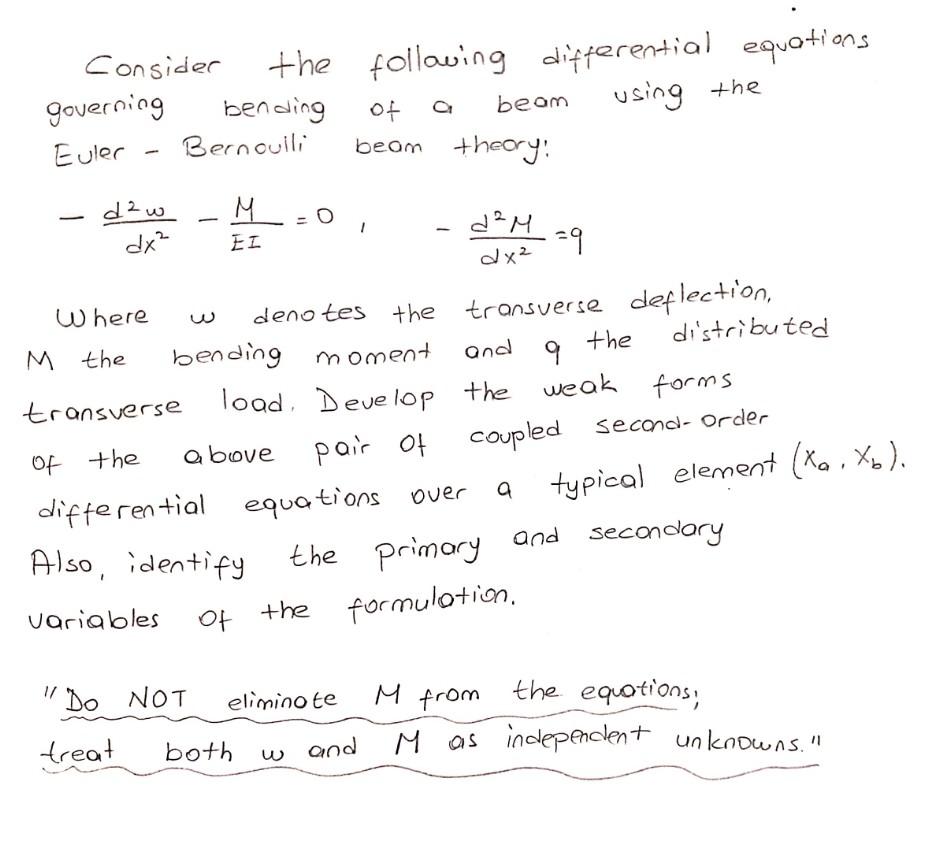 Consider the following differential equations
governing bending of a beam using the
Euler - Bernouili beam theory:
- d²w/dx² - M/EI = 0 , - d²M/dx² = q
Where w denotes the transverse deflection,
M the bending moment and q the distributed
transverse load. Develop the weak forms
of the above pair of coupled second-order
differential equations over a typical element (xₐ, x_b).
Also, identify the primary and secondary
variables of the formulation.
"Do NOT eliminate M from the equations;
treat both w and M as independent unknowns."